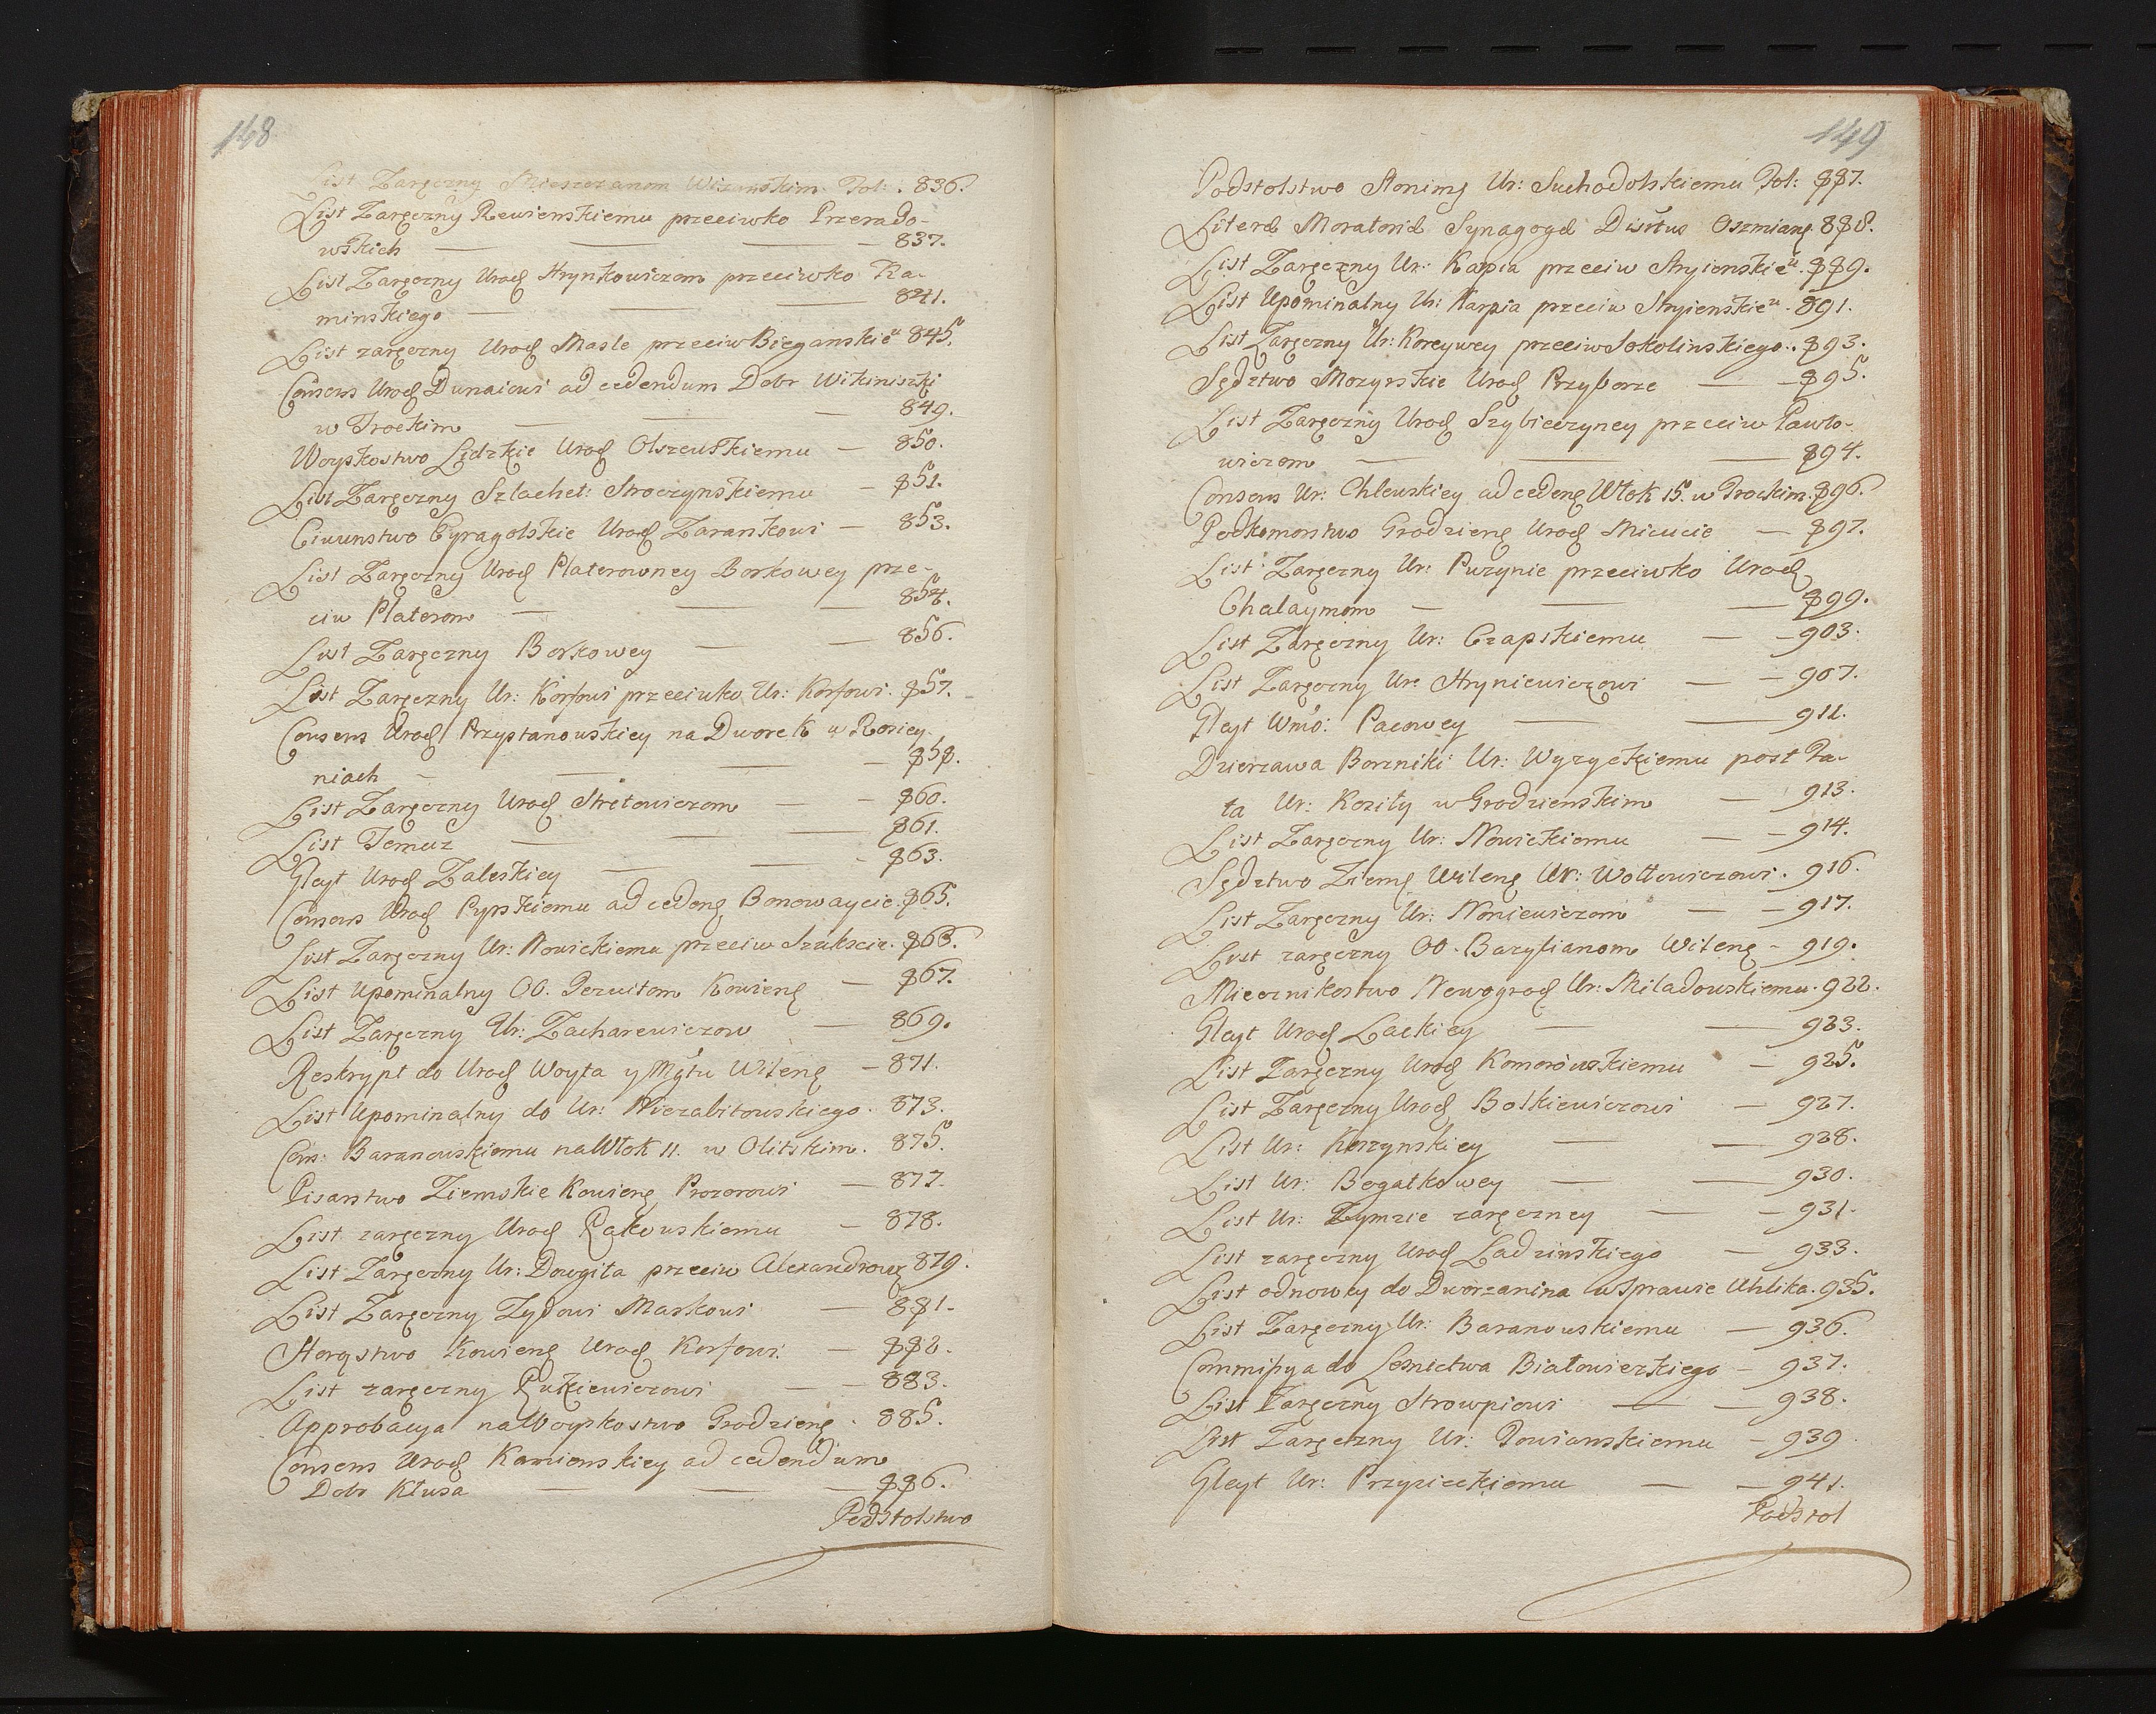 148
List Zaręczny Mieszczanom Wizunskim Fol: . 836.
List Zaręczny Rewienskiemu przeciwko Przerado-
wskich — 837.
List Zaręczny Urod Hrynkowiczom przeciwko Ka-
minskiego — 841.
List zaręczny Urod Masle przeciw Bieganskieᵘ 845.
Consens Urod Dunaiowi ad cedendum Dobr Wikiniszki
w Trockim — 849.
Woyskostwo Lidzkie Urod Olszewskiemu — 850.
List Zaręczny Szlachet: Stroczynskiemu — 851.
Ciwunstwo Eyragolskie Urod Zarankowi — 853.
List Zaręczny Urod Platerowney Borkowey prze-
ciw Platerom — 854.
List Zaręczny Borkowey — 856.
List Zaręczny Ur: Korfowi przeciwko Ur: Korfowi. 857.
Consens Urod Przystanowskiey na Dworek w Rosiey
niach — 858.
List Zaręczny Urod Stretowiczom — 860.
List Temuz — 861.
Gleyt Urod Zaleskiey — 863.
Consens Urod Pyrskiemu ad cedend Bonowaycie. 865.
List Zaręczny Ur: Nowickiemu przeciw Szukscie. 866.
List Upominalny OO. Jezuitom Kowiens — 867.
List Zaręczny Ur: Zacharewiczow — 869.
Reskrypt do Urod Woyta y Mgtu Wilens — 871.
List Upominalny do Ur: Niezabitowskiego. 873.
Con: Baranowskiemu na Włok 11. w Olitskim. 875.
Pisarstwo Ziemskie Kowiens Prozorowi — 877.
List zaręczny Urod Rakowskiemu — 878.
List Zaręczny Ur: Dowgita przeciw Alexandrowz 879.
List Zaręczny Zydowi Markowi — 881.
Horąstwo Kowiens Urod Korfowi. — 882.
List zaręczny Rukiewiczowi — 883.
Approbacya na Woyskostwo Grodziens . 885.
Consens Urod Kamienskiey ad cedendum
Dobr Kłusa — 886.
Podstolstwo
149
Podstolstwo Słonims Ur: Suchodolskiemu Fol: 887.
Literæ Moratoriæ Synagogæ Disttus Oszmians 888.
List Zaręczny Ur: Karpia przeciw Stryienskieᵘ. 889.
List Upominalny Ur: Karpia przeciw Stryienskieᵘ. 891.
List Zaręczny Ur: Koreywey przeciw Sokolinskiego. 893.
Sędztwo Mozyrskie Urod Przyborze — 895.
List Zaręczny Urod Szybieczyney przeciw Pawło-
wiczom — 894.
Consens Ur: Chlewskiey ad cedend Włok 15. w Trockim. 896.
Podkomorstwo Grodziens Urod Micucie — 897.
List Zaręczny Ur: Puzynie przeciwko Urod
Chalaymom — 899.
List Zaręczny Ur: Czapskiemu — 903.
List Zaręczny Ur: Hryniewiczowi — 907.
Gleyt Wmo: Pacowey — 911.
Dzierzawa Borzniki Ur: Wyzyckiemu post Fa-
ta Ur: Koziły w Grodzienskim — 913.
List Zaręczny Ur: Nowickiemu — 914.
Sędztwo Ziems Wilens Ur: Wołłowiczowi. 916.
List Zaręczny Ur: Noniewiczom — 917.
List zaręczny OO. Bazylianom Wilens — 919.
Miecznikostwo Nowogrod Ur: Miladowskiemu. 922.
Gleyt Urod Lackiey — 923.
List Zaręczny Urod Komorowskiemu — 925.
List Zaręczny Urod Bolkiewiczowi — 927.
List Ur: Korzynskiey — 928.
List Ur: Bogatkowey — 930.
List Ur: Zymzie zaręczney — 931.
List zaręczny Urod Ladzinskiego — 933.
List odnowey do Dworzanina w Sprawie Uhlika. 935.
List Zaręczny Ur: Baranowskiemu — 936.
Commissya do Lesnictwa Białowieskiego — 937.
List Zaręczny Strowpiowi — 938.
List Zaręczny Ur: Powianskiemu — 939
Gleyt Ur: Przysieckiemu — 941.
Podstol